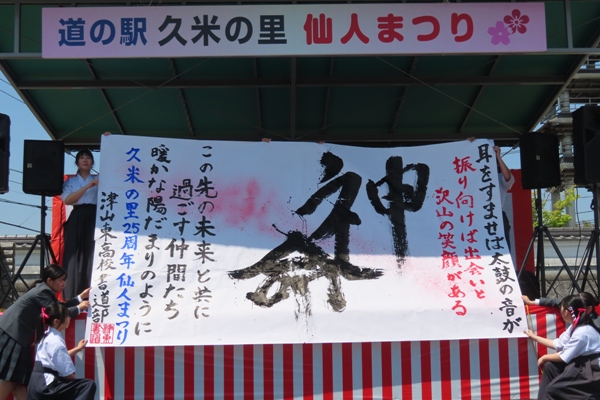 道の駅 久米の里 仙人まつり
耳をすませば太鼓の音が
振り向けば出会いと
沢山の笑顔がある
神
この先の未来と共に
過ごす仲間たち
暖かな陽だまりのように
久米の里25周年仙人まつり
津山東高校書道部